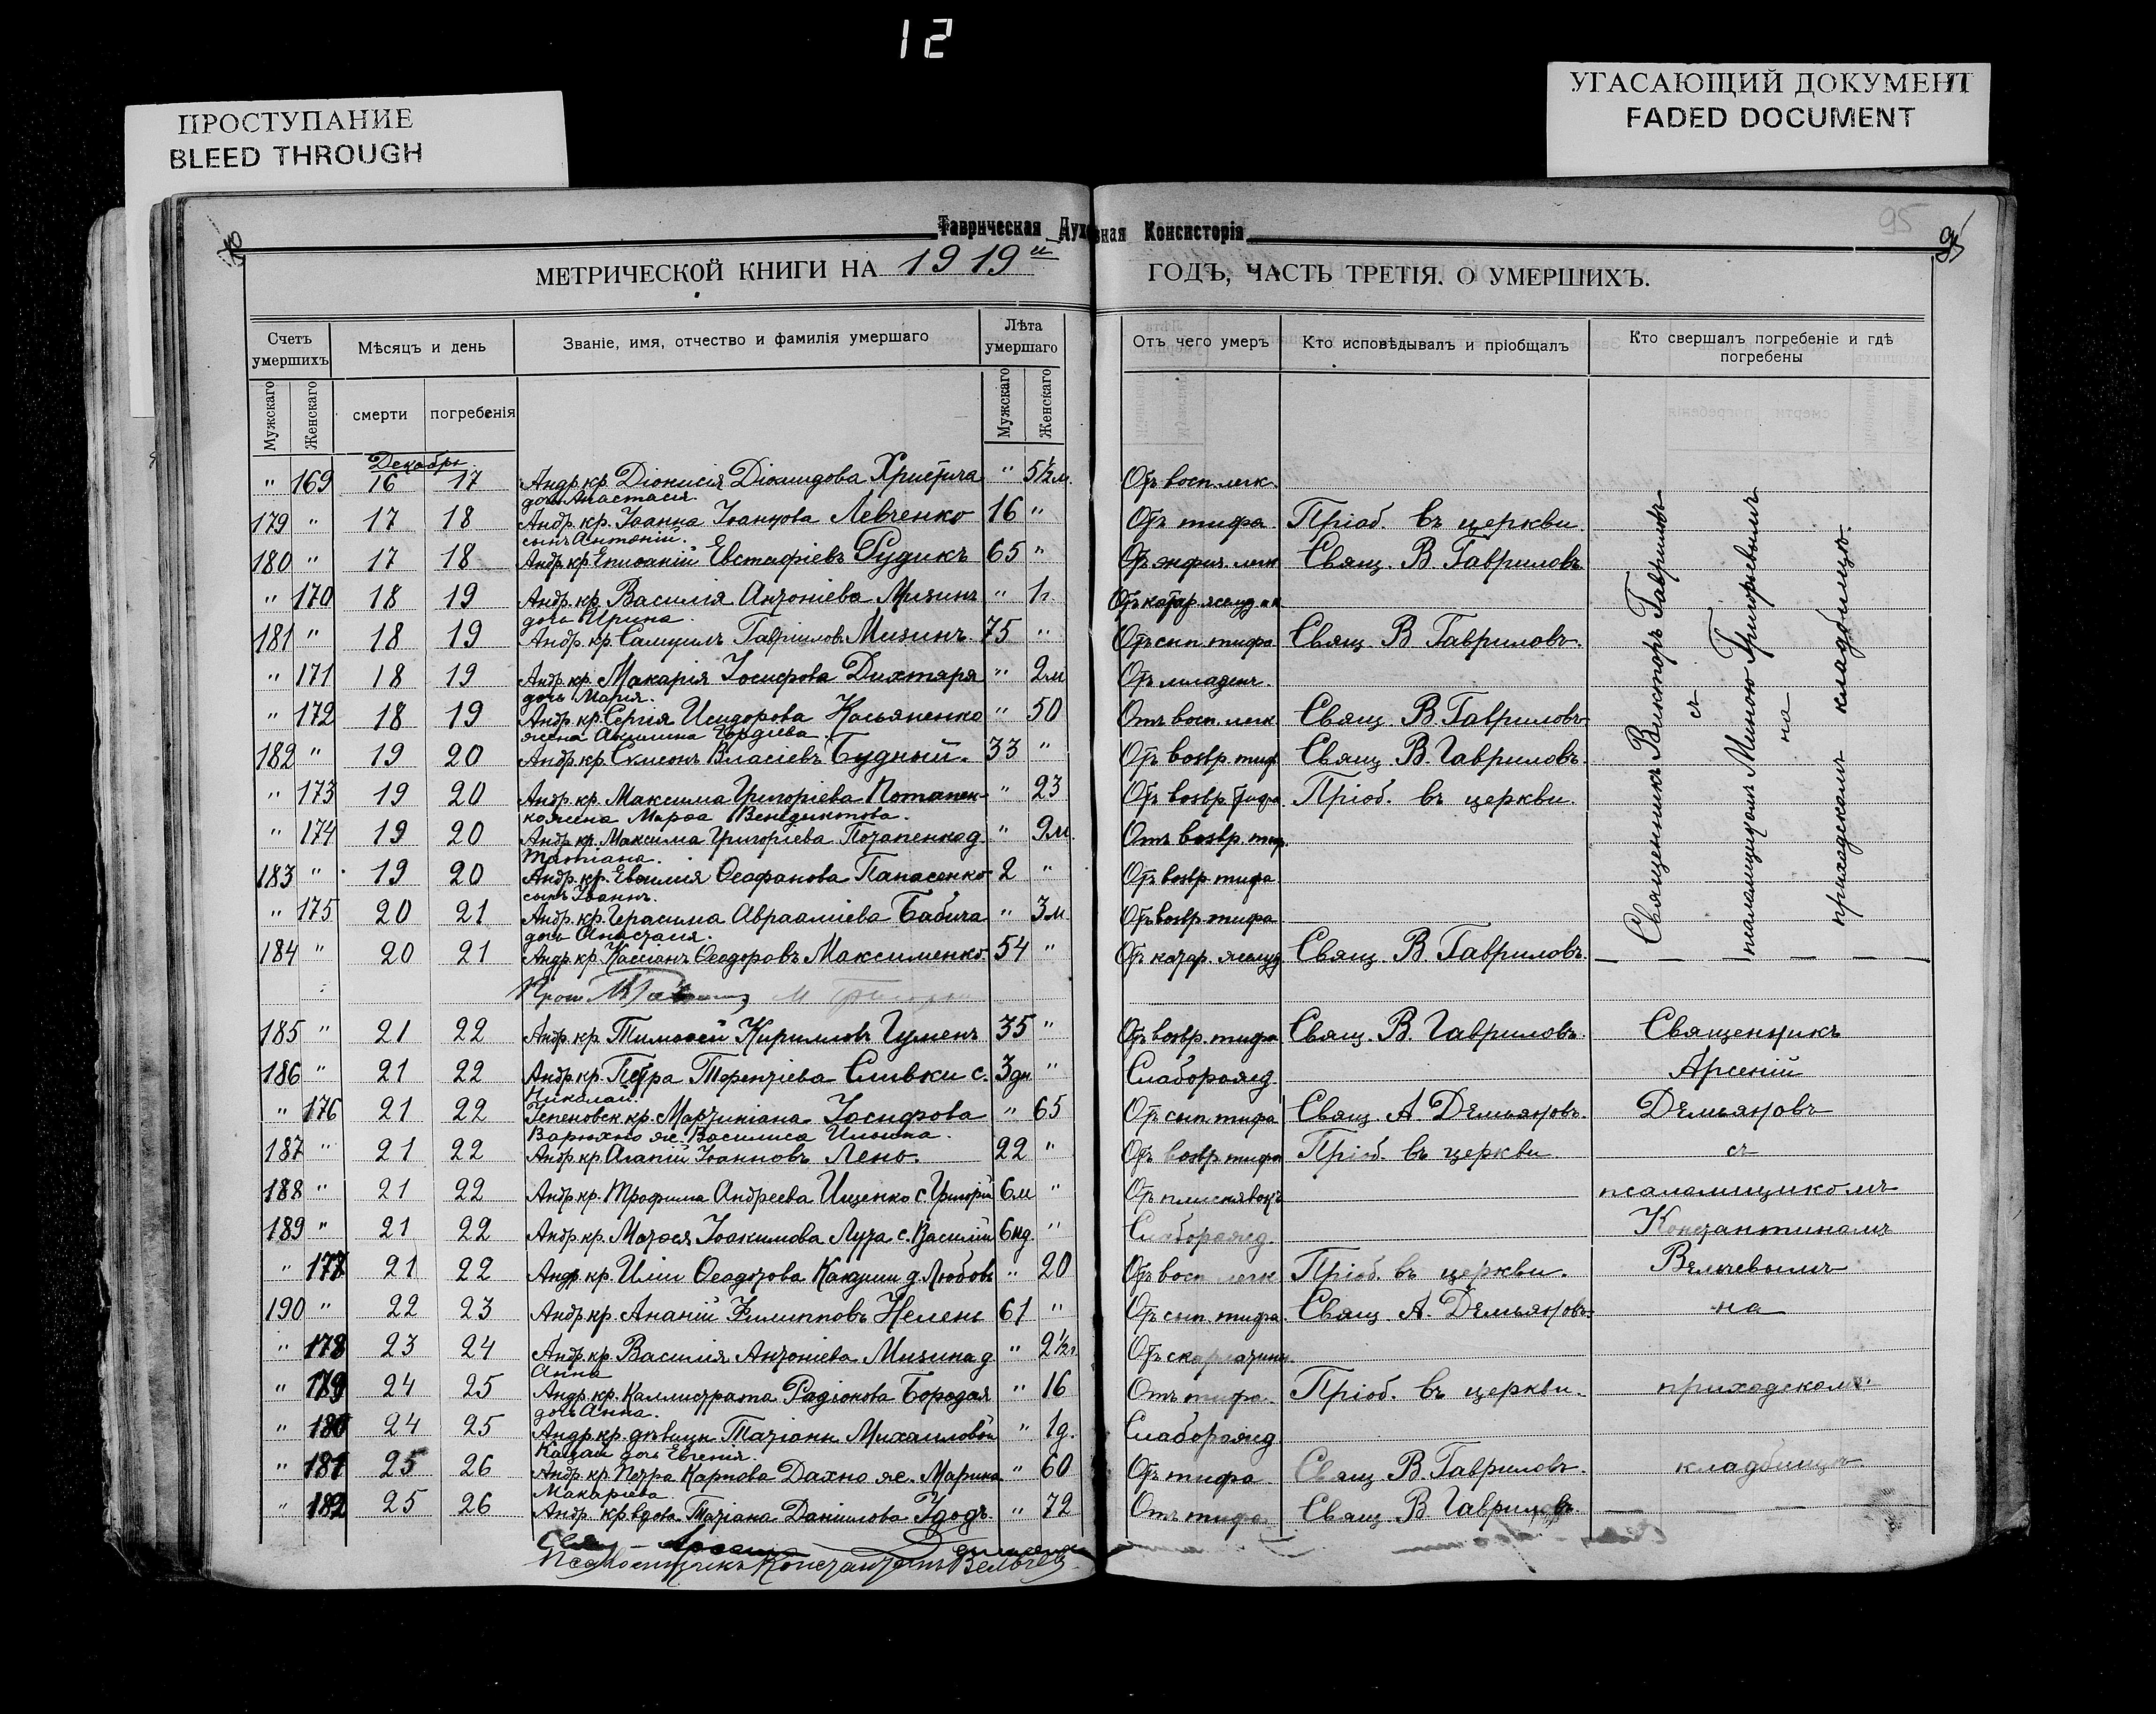 12
ПРОСТУПАНИЕ
BLEED THROUGH
УГАСАЮЩИЙ ДОКУМЕНТ
FADED DOCUMENT
Таврическая Духовная Консисторія
95
95
МЕТРИЧЕСКОЙ КНИГИ НА 1919й ГОДЪ, ЧАСТЬ ТРЕТІЯ, О УМЕРШИХЪ.
Счетъ умершихъ
Мѣсяцъ и день
Званіе, имя, отчество и фамилія умершаго
Лѣта умершаго
Отъ чего умеръ
Кто исповѣдывалъ и пріобщалъ
Кто свершалъ погребеніе и гдѣ погребены
Мужскаго
Женскаго
смерти
погребенія
Мужскаго
Женскаго
Декабрь
" 169 16 17 Андр. кр. Діонисія Діомидова Христича " 5½м. Отъ восп. легк.
дочь Анастасія.
179 " 17 18 Андр. кр. Іоанна Іоаннова Левченко 16 " Отъ тифа Пріоб. въ церкви.
сынъ Антоній.
180 " 17 18 Андр. кр. Епифаній Евстафіевъ Рудикъ 65 " Отъ энфиз. легк Свящ. В. Гавриловъ.
" 170 18 19 Андр. кр. Василія Антоніева Мизинъ " 1г. Отъ катар. желуд.
дочь Ирина.
181 " 18 19 Андр. кр. Самуилъ Гавриловъ Мизинъ 75 " Отъ сып. тифа Свящ. В. Гавриловъ.
" 171 18 19 Андр. кр. Макарія Іосифова Дихтяря " 2м Отъ младенч.
дочь Марія.
" 172 18 19 Андр. кр. Сергія Исидорова Касьяненко " 50 Отъ восп. легк Свящ. В. Гавриловъ
жена Акилина Гордіева
182 " 19 20 Андр. кр. Симеонъ Власіевъ Будный. 33 " Отъ возвр. тиф Свящ. В. Гавриловъ.
" 173 19 20 Андр. кр. Максима Григоріева Потапен- " 23 Отъ возвр. тифа Пріоб. въ церкви.
ко жена Марѳа Венедиктова.
" 174 19 20 Андр. кр. Максима Григоріева Потапенко д. " 2м. Отъ возвр. тиф.
Татіана.
183 " 19 20 Андр. кр. Евѳимія Ѳеофанова Панасенко 2 " Отъ возвр. тифа
сынъ Іоаннъ.
" 175 20 21 Андр. кр. Герасима Авраамiева Бабича " 3м. Отъ возвр. тифа
дочь Анастасія.
184 " 20 21 Андр. кр. Кассіанъ Ѳеодоровъ Максименко. 54 " Отъ катар. желуд. Свящ. В. Гавриловъ.
Священникъ Викторъ Гавриловъ
съ
псаломщикомъ Миною Григорьевымъ
на
приходскомъ кладбищѣ.
185 " 21 22 Андр. кр. Тимоѳей Кирилловъ Гуменъ 35 " Отъ возвр. тифа Свящ. В. Гавриловъ. Священникъ
186 " 21 22 Андр. кр. Петра Терентіева Сливки с. 3дн " Слаборожд. Арсеній
Николай.
" 176 21 22 Успеновск кр. Мартиніана Іосифова " 65 Отъ сып. тифа Свящ. А Демьяновъ. Демьяновъ
ж. Василиса Ильина.
187 " 21 22 Андр. кр. Агапій Іоанновъ Лено. 22 " Отъ возвр. тифа Пріоб. въ церкви. съ
188 " 21 22 Андр. кр. Трофима Андреева Ищенко с. Григорій 6м " псаломщикомъ
189 " 21 22 Андр. кр. Матѳея Іоакимова Луга с. Василій 6нд. " Слаборожд. Константиномъ
" 177 21 22 Андр. кр. Иліи Ѳеодотова д. Любовь " 20 Отъ восп. легк Пріоб. въ церкви. Вельчевымъ
190 " 22 23 Андр. кр. Ананій Филипповъ Нелень 61 " Отъ сып. тифа. Свящ. А. Демьяновъ. на
" 178 23 24 Андр. кр. Василія Антоніева Мизина д " 2½г Отъ скарлатины.
Анна
" 179 24 25 Андр. кр. Каллистрата Родіонова Бородая " 16 Отъ тифа. Пріоб. въ церкви. приходскомъ
дочь Анна.
" 180 24 25 Андр. кр. дѣвицы Татіаны Михаиловой " 1д. Слаборожд.
дочь Евгенія.
" 181 25 26 Андр. кр. Петра Карпова Дахно ж. Марина " 60 Отъ тифа Свящ. В. Гавриловъ. кладбищѣ.
Макаріева.
" 182 25 26 Андр. кр. вдова Татіана Даніилова Удодъ. " 72 Отъ тифа Свящ. В. Гавриловъ
Псаломщикъ Константинъ Вельчевъ